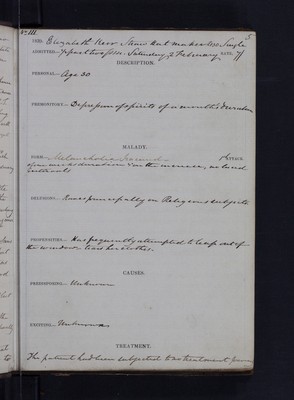 No. III.
5
CASE: Elizabeth Keer. Straw hat maker. Single
ADMITTED— ½ past two P.M. Saturday 7 February RATE: 7/
DESCRIPTION.
PERSONAL— Age 30
PREMONITORY— Depression of spirits of a month's duration
MALADY.
FORM— Melancholia ATTACK
duration & in the manner, as lucid
intervals
DELUSIONS— Raves principally on Religious subjects
PROPENSITIES— Has frequently attempted to leap out of
the window & tears her clothes.
CAUSES.
PREDISPOSING— Unknown
EXCITING— Unknown
TREATMENT.
The patient had been subjected to no treatment